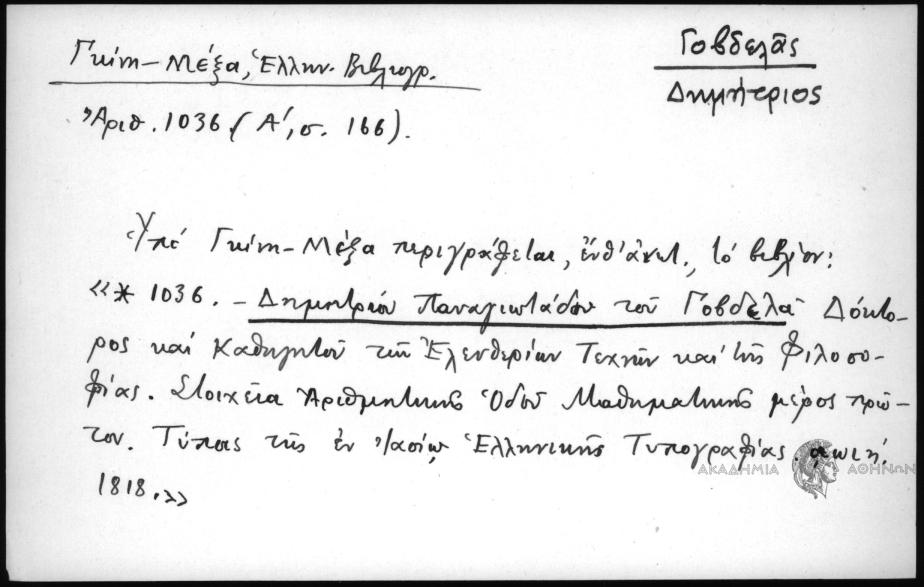 Γκίνη-Μέξα, Ἑλλην. Βιβλιογρ.
Γοβδελᾶς
Δημήτριος
Ἀριθ. 1036 (Α', σ. 166).
Ὑπό Γκίνη-Μέξα περιγράφεται, ἔνθ' ἀνωτ., τό βιβλίον:
«* 1036. - Δημητρίου Παναγιωτάδου τοῦ Γοβδελᾶ Δόκτο-
ρος καί Καθηγητοῦ τῶν Ἐλευθερίων Τεχνῶν καί τῆς Φιλοσο-
φίας. Στοιχεῖα Ἀριθμητικῆς Ὁδοῦ Μαθηματικῆς μέρος πρῶ-
τον. Τύποις τῆς ἐν Ἰασίῳ Ἑλληνικῆς Τυπογραφίας. αωιή.
1818.»
ΑΚΑΔΗΜΙΑ ΑΘΗΝΩΝ